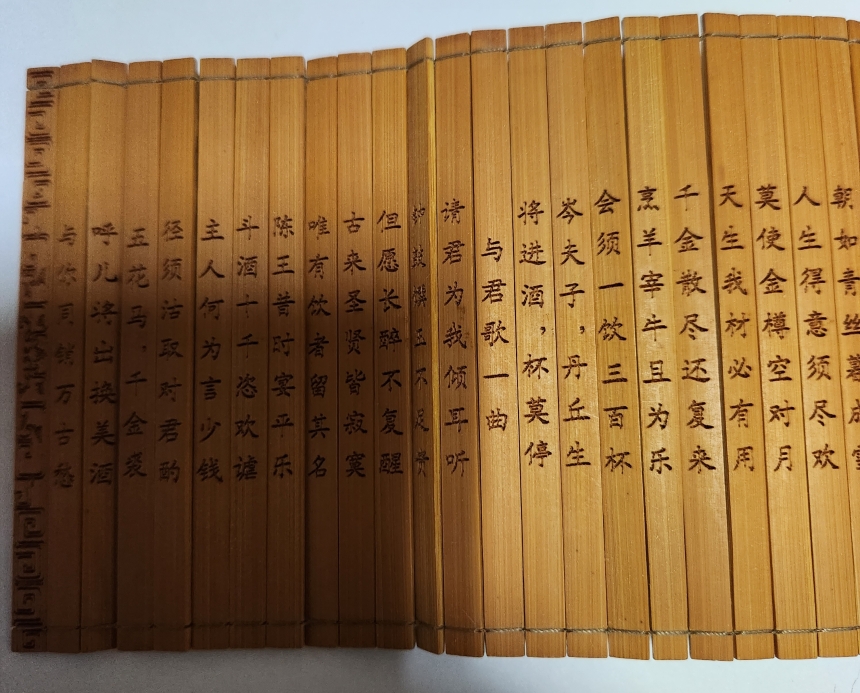 朝如青丝暮成雪
人生得意须尽欢
莫使金樽空对月
天生我材必有用
千金散尽还复来
烹羊宰牛且为乐
会须一饮三百杯
岑夫子，丹丘生
将进酒，杯莫停
与君歌一曲
请君为我倾耳听
钟鼓馔玉不足贵
但愿长醉不复醒
古来圣贤皆寂寞
唯有饮者留其名
陈王昔时宴平乐
斗酒十千恣欢谑
主人何为言少钱
径须沽取对君酌
五花马，千金裘
呼儿将出换美酒
与你同销万古愁